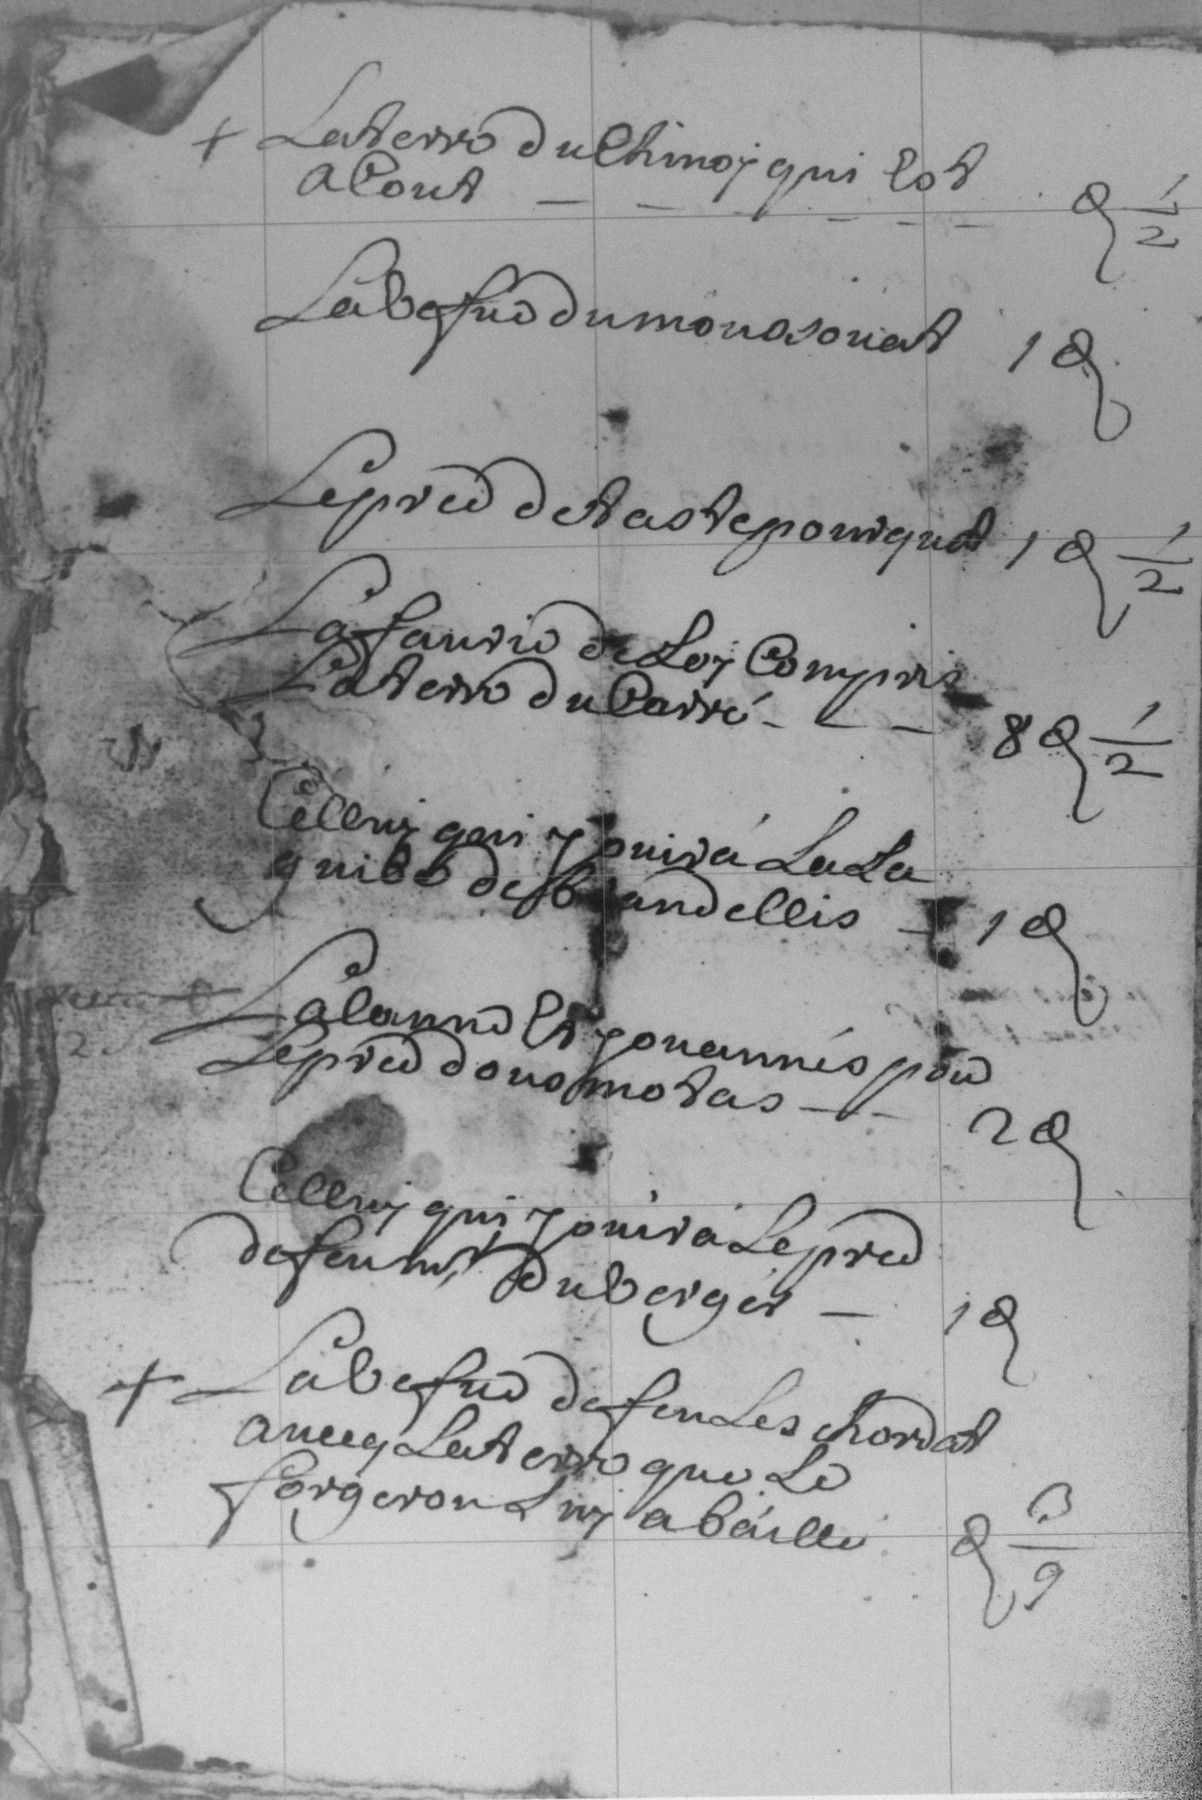 + La terre du Chinoy qui lot
a Cout - - - - - - ꝗ 1/2
La befue du mouosouat 1 ꝗ
Le pred de tastepouiquat 1 ꝗ 1/2
La faurie de Loy Compris
La terre du Carré - - - 8 ꝗ 1/2
Celluy qui youira La La
guibe des brandellis - 1 ꝗ
La lanne Et youannés pour
Le pred dous motas - - 2 ꝗ
Celluy qui youira Le pred
de feu du berger - 1 ꝗ
+ La befue de feu Leschordat
auecq La terre que Le
forgeron Luy a baillé ꝗ 3/9